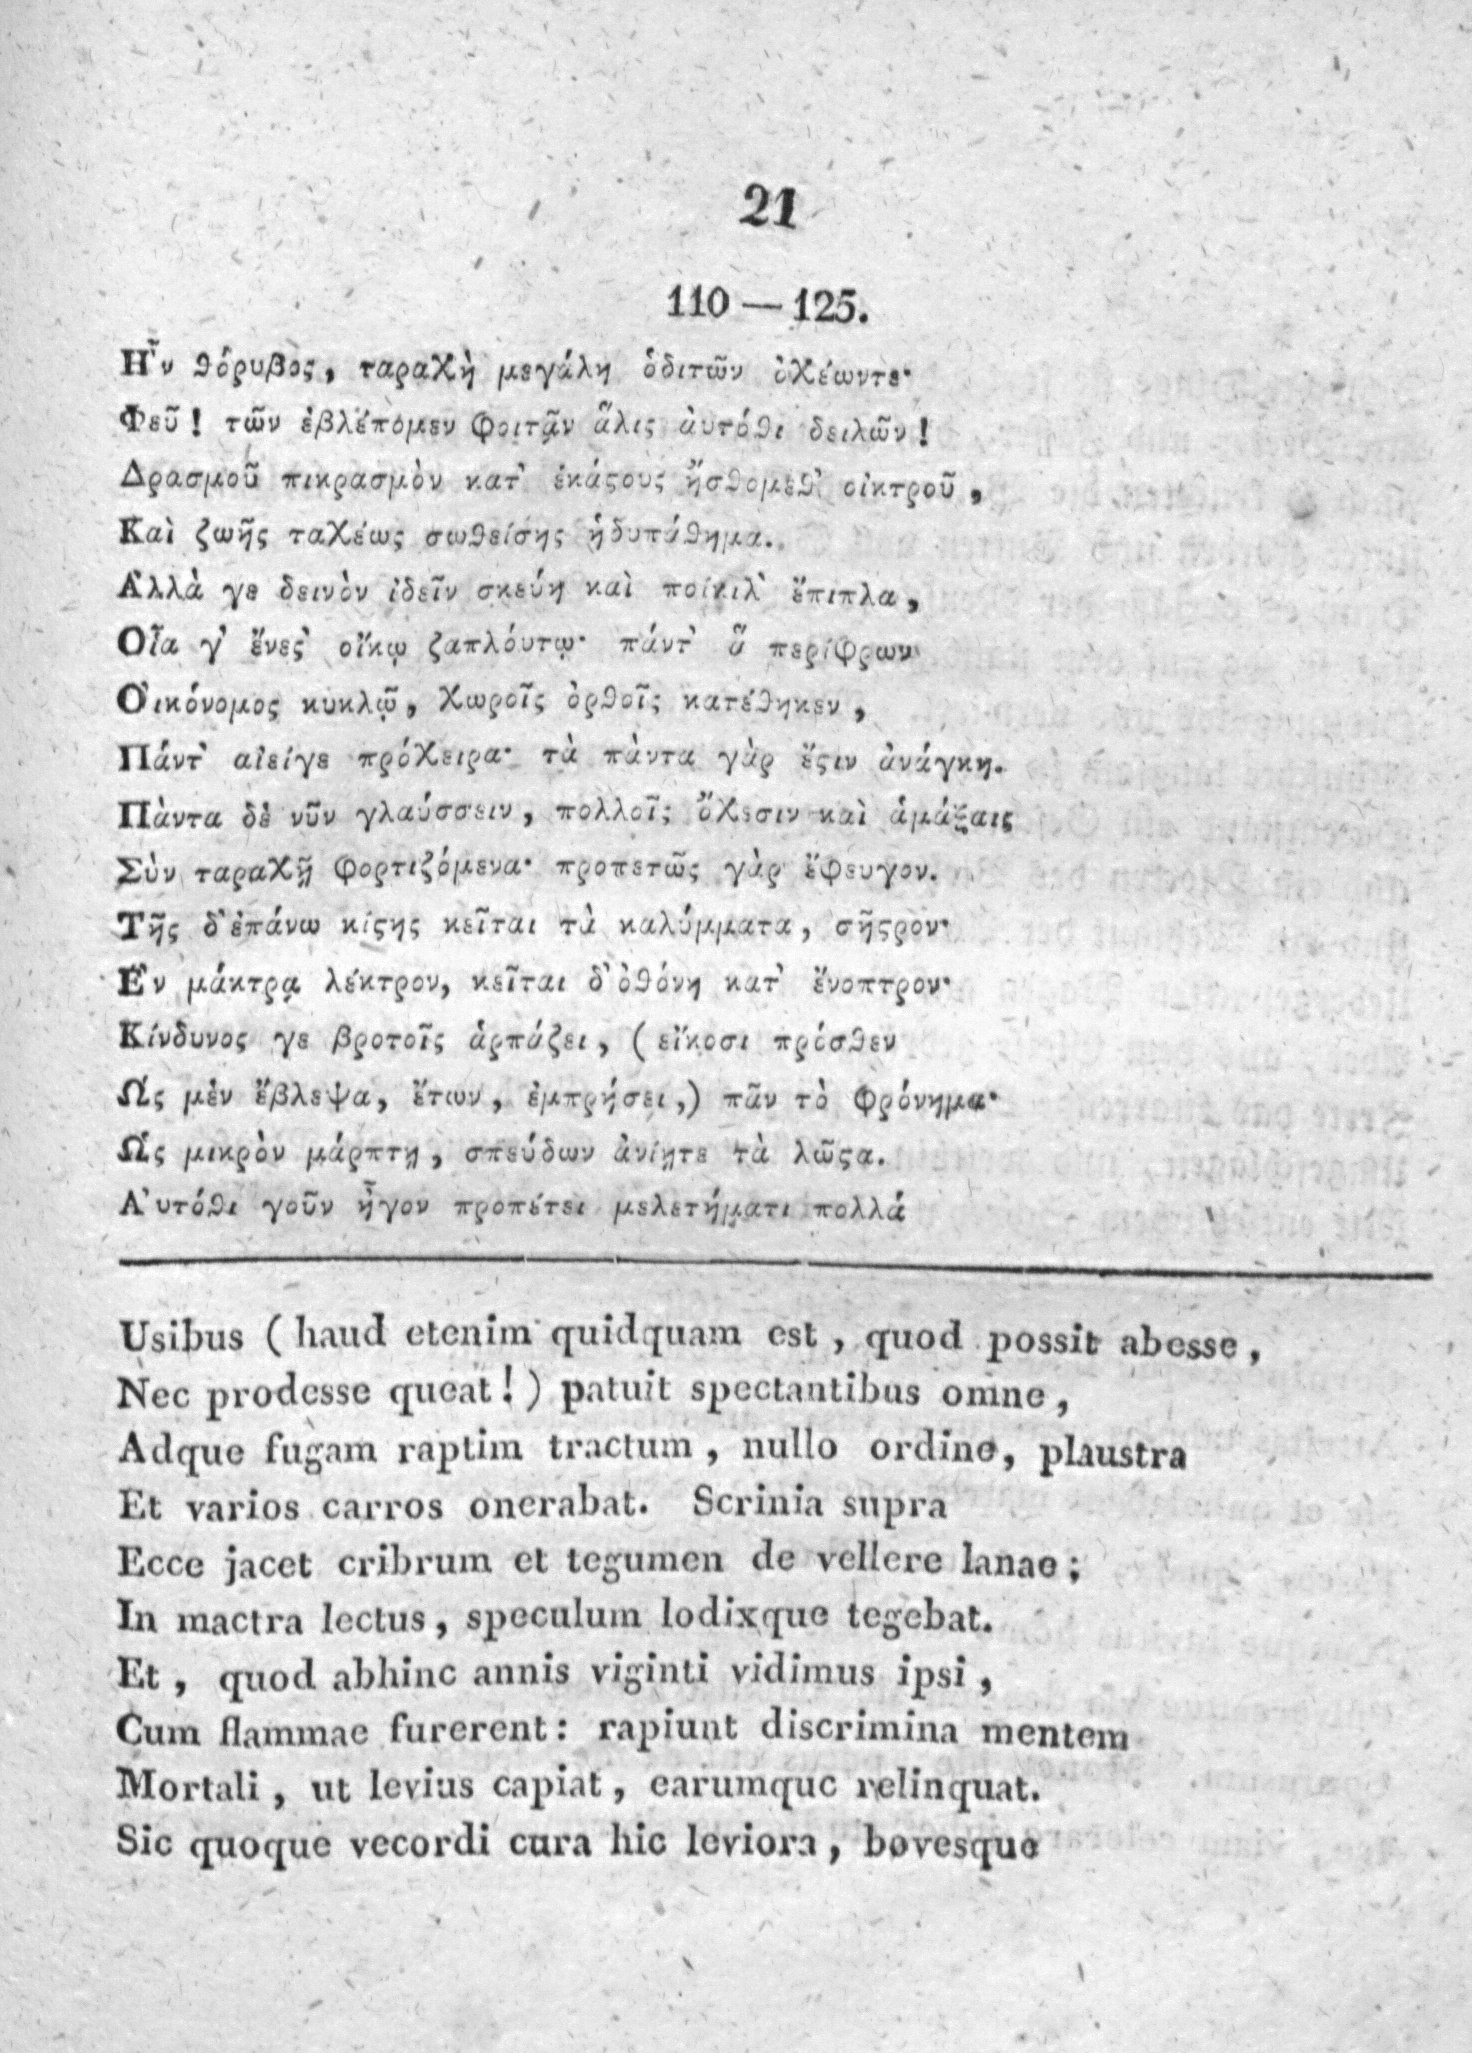 21
110 — 125.
Η῏ν θόρυβος, ταραχὴ μεγάλη ὁδιτῶν ὀχέωντε·
Φεῦ! τῶν ἐβλέπομεν φοιτᾷν ἅλις ἀυτόθι δειλῶν!
Δρασμοῦ πικρασμὸν κατ᾽ ἑκάϛους ᾔσθομεθ᾽ οἰκτροῦ,
Καὶ ζωῆς ταχέως σωθείσης ἡδυπάθημα.
Ἀλλὰ γε δεινὸν ἰδεῖν σκεύη καὶ ποίκιλ᾽ ἔπιπλα,
Οἷα γ᾽ ἔνεϛ᾽ οἴκῳ ζαπλούτῳ· πάντ᾽ ἃ περίφρων
Ὀικόνομος κυκλῷ, χωροῖς ὀρθοῖς κατέθηκεν,
Πάντ᾽ αἰείγε πρόχειρα· τὰ πὰντα γὰρ ἔϛιν ἀνάγκη.
Πὰντα δὲ νῦν γλαύσσειν, πολλοῖς ὄχεσιν καὶ ἁμάξαις
Σὺν ταραχῇ φορτιζόμενα· προπετῶς γὰρ ἔφευγον.
Τῆς δ᾽ἐπάνω κίϛης κεῖται τὰ καλύμματα, σῆϛρον·
Ἐν μάκτρᾳ λέκτρον, κεῖται δ᾽ὀθόνη κατ᾽ ἔνοπτρον·
Κίνδυνος γε βροτοῖς ἁρπάζει, (εἴκοσι πρόσθεν
Ὡς μὲν ἔβλεψα, ἔτων, ἐμπρήσει,) πᾶν τὸ φρόνημα·
Ὡς μικρὸν μάρπτῃ, σπεύδων ἀνίῃτε τὰ λῶϛα.
Ἀυτόθι γοῦν ἦγον προπέτει μελετήματι πολλά
Usibus (haud etenim quidquam est, quod possit abesse,
Nec prodesse queat!) patuit spectantibus omne,
Adque fugam raptim tractum, nullo ordine, plaustra
Et varios carros onerabat. Scrinia supra
Ecce jacet cribrum et tegumen de vellere lanae;
In mactra lectus, speculum lodixque tegebat.
Et, quod abhinc annis viginti vidimus ipsi,
Cum flammae furerent: rapiunt discrimina mentem
Mortali, ut levius capiat, carumque relinquat.
Sic quoque vecordi cura hic leviora, bovesque